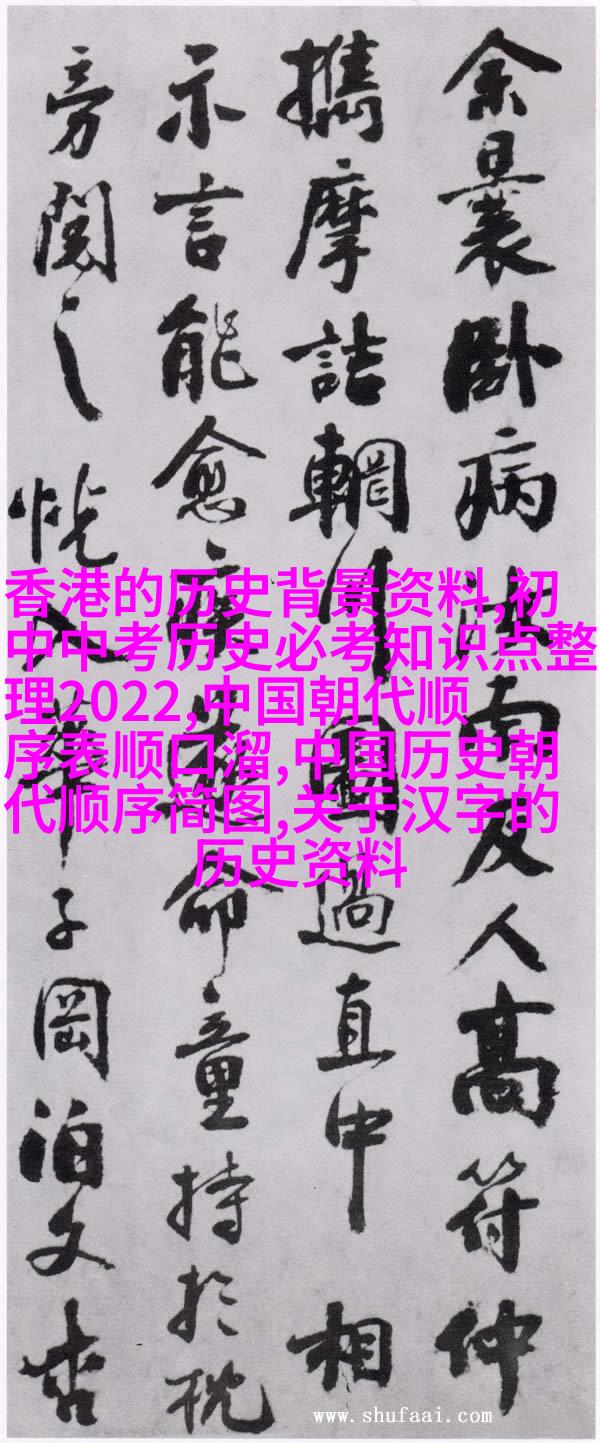 余曩卧病汝南友人高符仲
攜摩詰輞川圖過直中相
示言能愈疾遂命童持於枕
旁閱之恍入華子岡泊文杏
香港的历史背景资料,初
中中考历史必考知识点整
理2022,中国朝代顺
序表顺口溜,中国历史朝
代顺序简图,关于汉字的
历史资料
www.shufaai.com